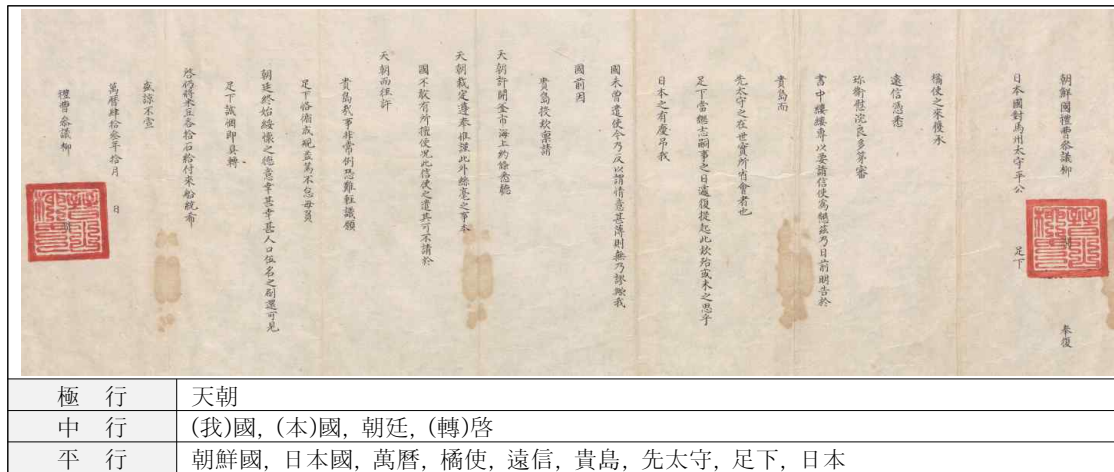 朝鮮國禮曹參議柳 奉復
日本國對馬州太守平公 足下
橘使之來獲承
遠信憑悉
珎衛慰浣良多第審
書中縷縷專以要請信使爲懇茲乃日前明告於
貴島而
先太守之在世實所省會者也
足下當繼志嗣事之日遽復提起此欵殆或未之思乎
日本之有慶弔我
國未曾遣使今乃反以謂情意甚薄則無乃謬歟我
國前因
貴島投欵稟請
天朝許開釜市海上約條悉聽
天朝裁定遵奉惟謹此外絲毫之事本
國不敢有所擅使况此信使之遣其可不請於
天朝而徑許
貴島哉事非常例恐難輕議願
足下恪循成規益篤不怠毋負
朝廷終始綏懷之德意幸甚幸甚人口伍名之刷還可見
足下誠悃即具轉
啓仍將米豆各拾石給付來船統希
盛諒不宣
萬曆肆拾參年拾月 日
禮曹參議柳
極 行 天朝
中 行 (我)國, (本)國, 朝廷, (轉)啓
平 行 朝鮮國, 日本國, 萬曆, 橘使, 遠信, 貴島, 先太守, 足下, 日本